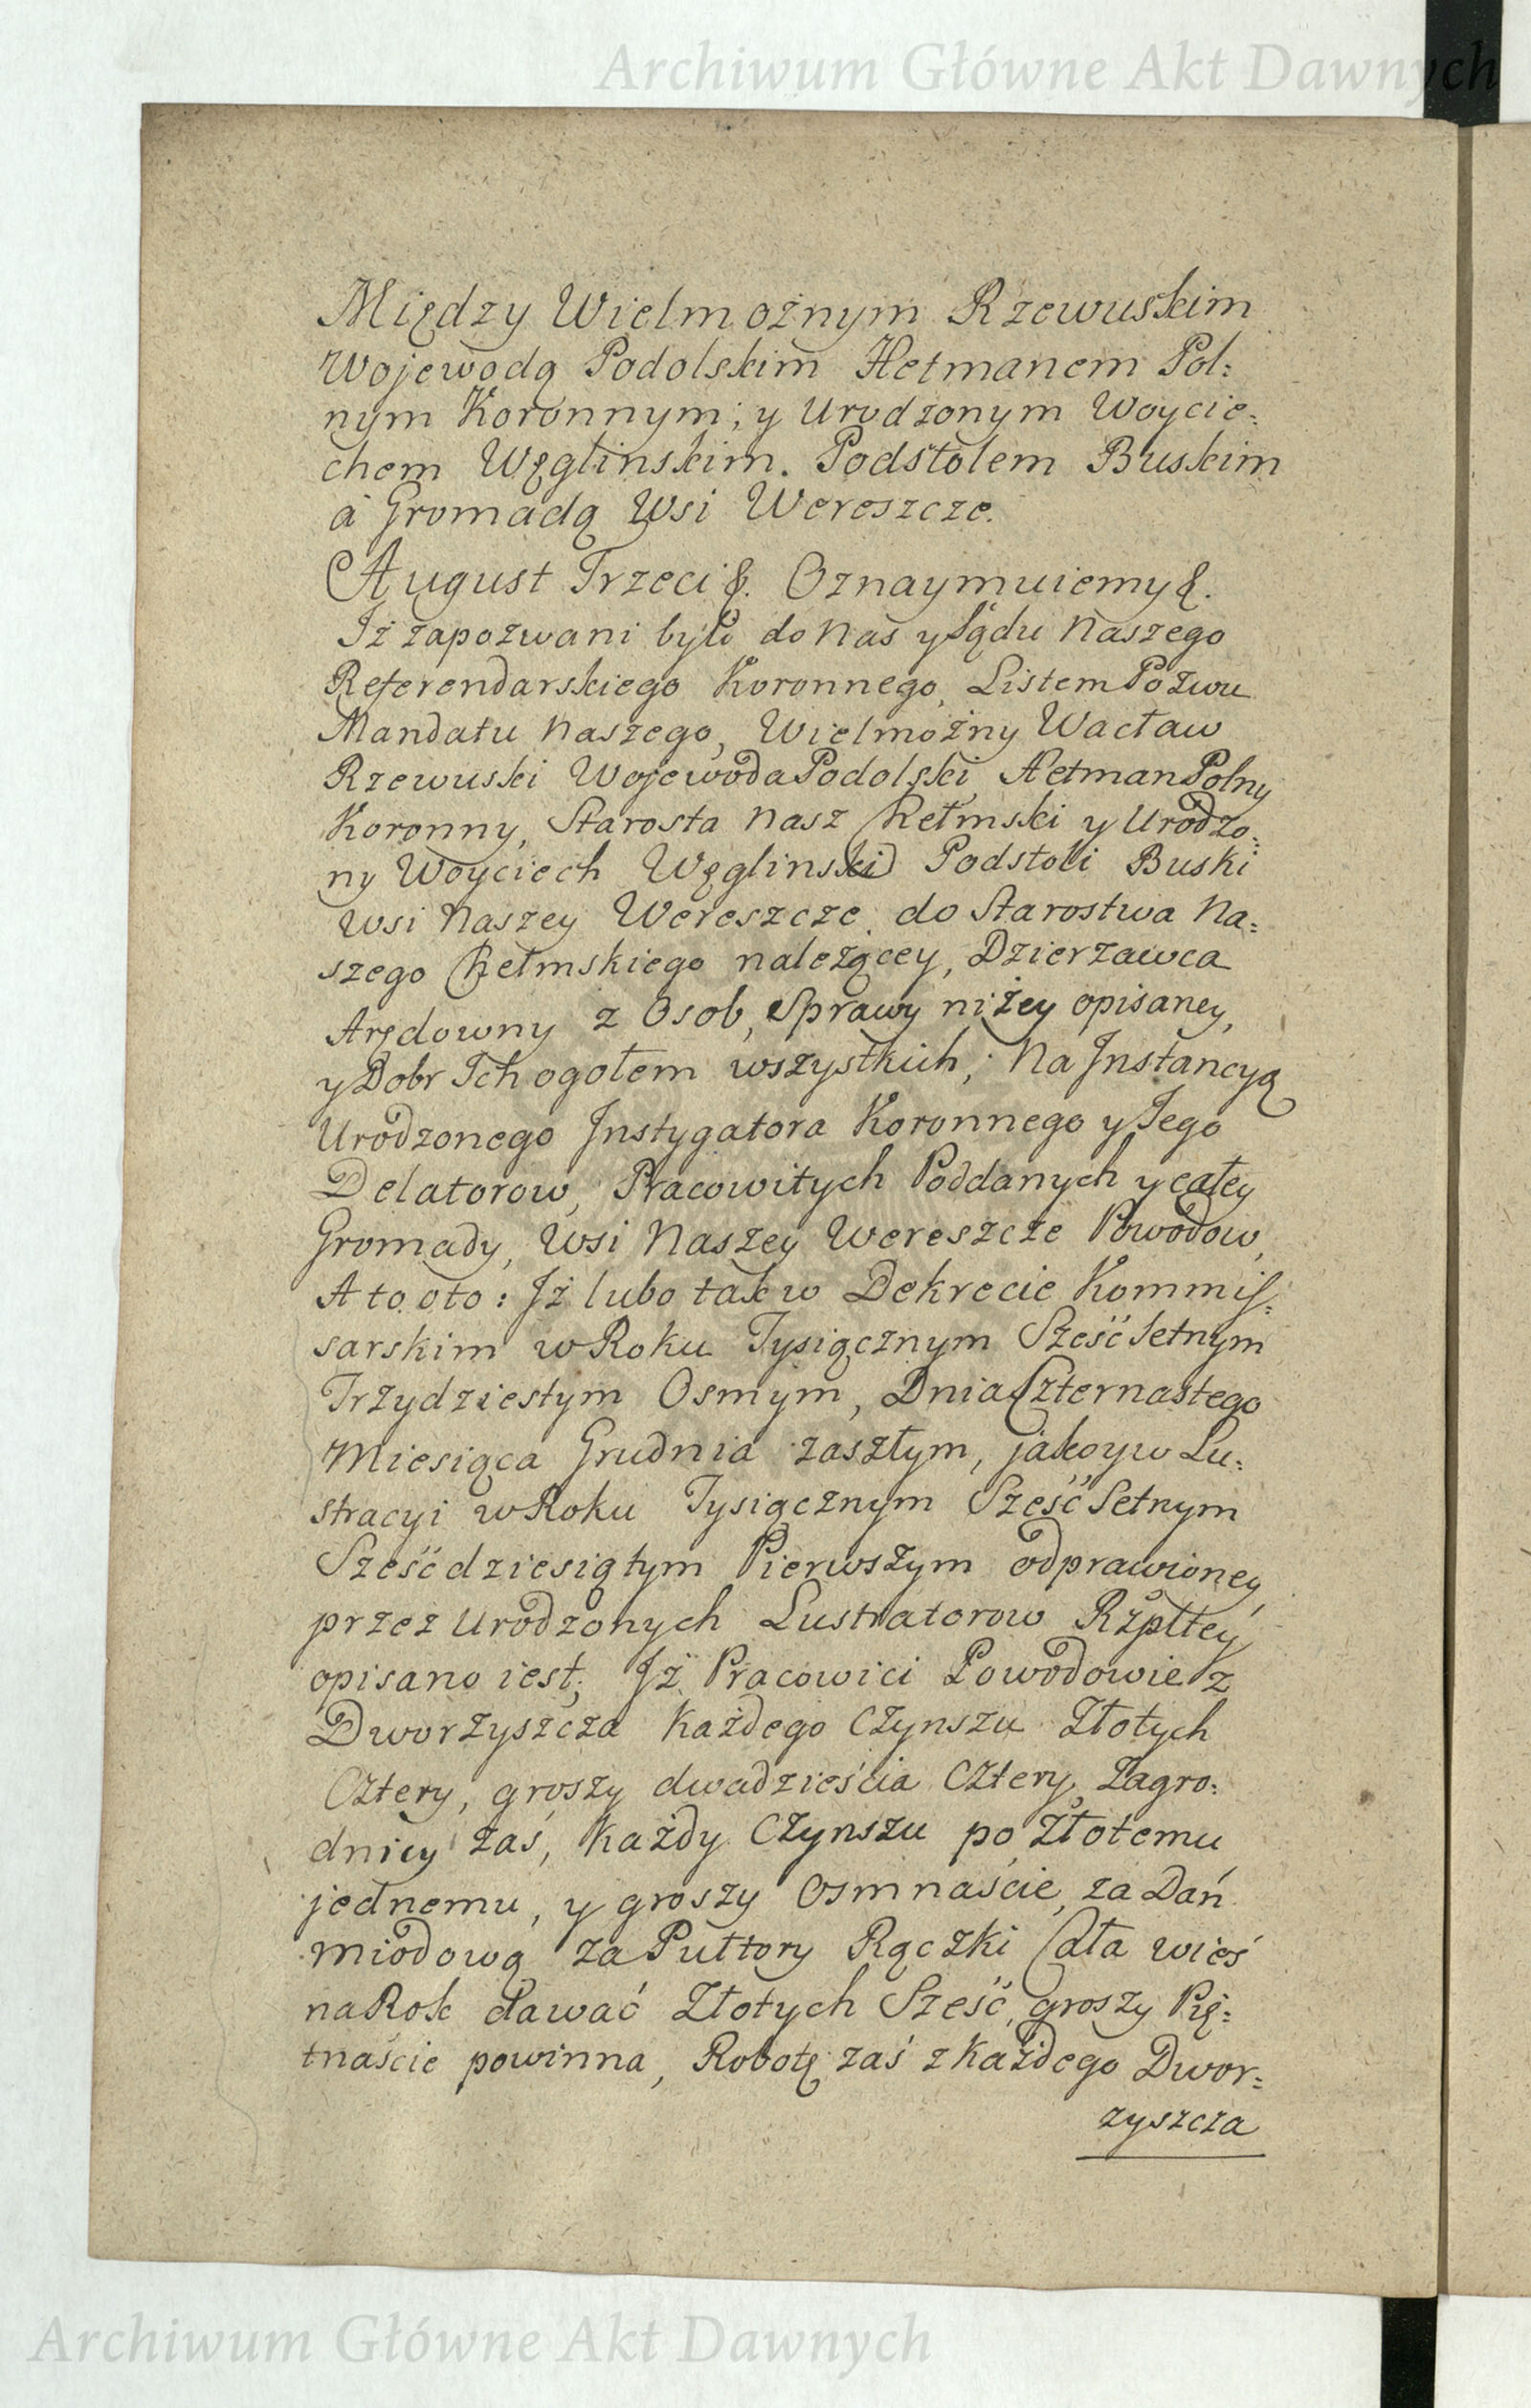 Archiwum Główne Akt Dawnych
Między Wielmożnym Rzewuskim
Wojewodą Podolskim Hetmanem Pol:
nym Koronnym; y Urodzonym Woycie:
chem Węglinskim. Podstolem Buskim
à Gromadą Wsi Wereszcze.
August Trzeci &. Oznaymuiemy &.
Iż zapozwani byli do Nas y Sądu Naszego
Referendarskiego Koronnego, Listem Pozwu
Mandatu Naszego, Wielmożny Wacław
Rzewuski Wojewoda Podolski, Hetman Polny
Koronny, Starosta Nasz Chełmski y Urodzo:
ny Woyciech Węglinski Podstoli Buski
Wsi Naszey Wereszcze do Starostwa Na:
szego Chełmskiego nalezącey, Dzierzawca
Arędowny z Osob, Sprawy niżey opisaney,
y Dobr Ich ogołem wszystkich; Na Instancyą
Urodzonego Instygatora Koronnego y Iego
Delatorow, Pracowitych Poddanych y całey
Gromady, Wsi Naszey Wereszcze Powodow,
A to oto: Iż lubo tak w Dekrecie Kommis:
sarskim w Roku Tysiącznym Sześć Setnym
Trzydziestym Osmym, Dnia Czternastego
Miesiąca Grudnia zaszłym, jako y w Lu:
stracyi w Roku Tysiącznym Sześć Setnym
Sześćdziesiątym Pierwszym odprawioney,
przez Urodzonych Lustratorow Rzpltey
opisano iest; Iż Pracowici Powodowie z
Dworzyszcza Każdego Czynszu Złotych
Cztery, groszy dwadzieścia Cztery, Zagro:
dnicy zaś, Każdy Czynszu po Złotemu
jednemu, y groszy Osmnaście, za Dań
miodową za Pułtory Rączki Cała wieś
na Rok dawać Złotych Sześć, groszy Pię:
tnaście powinna, Robotę zaś z Każdego Dwor:
zyszcza
Archiwum Główne Akt Dawnych